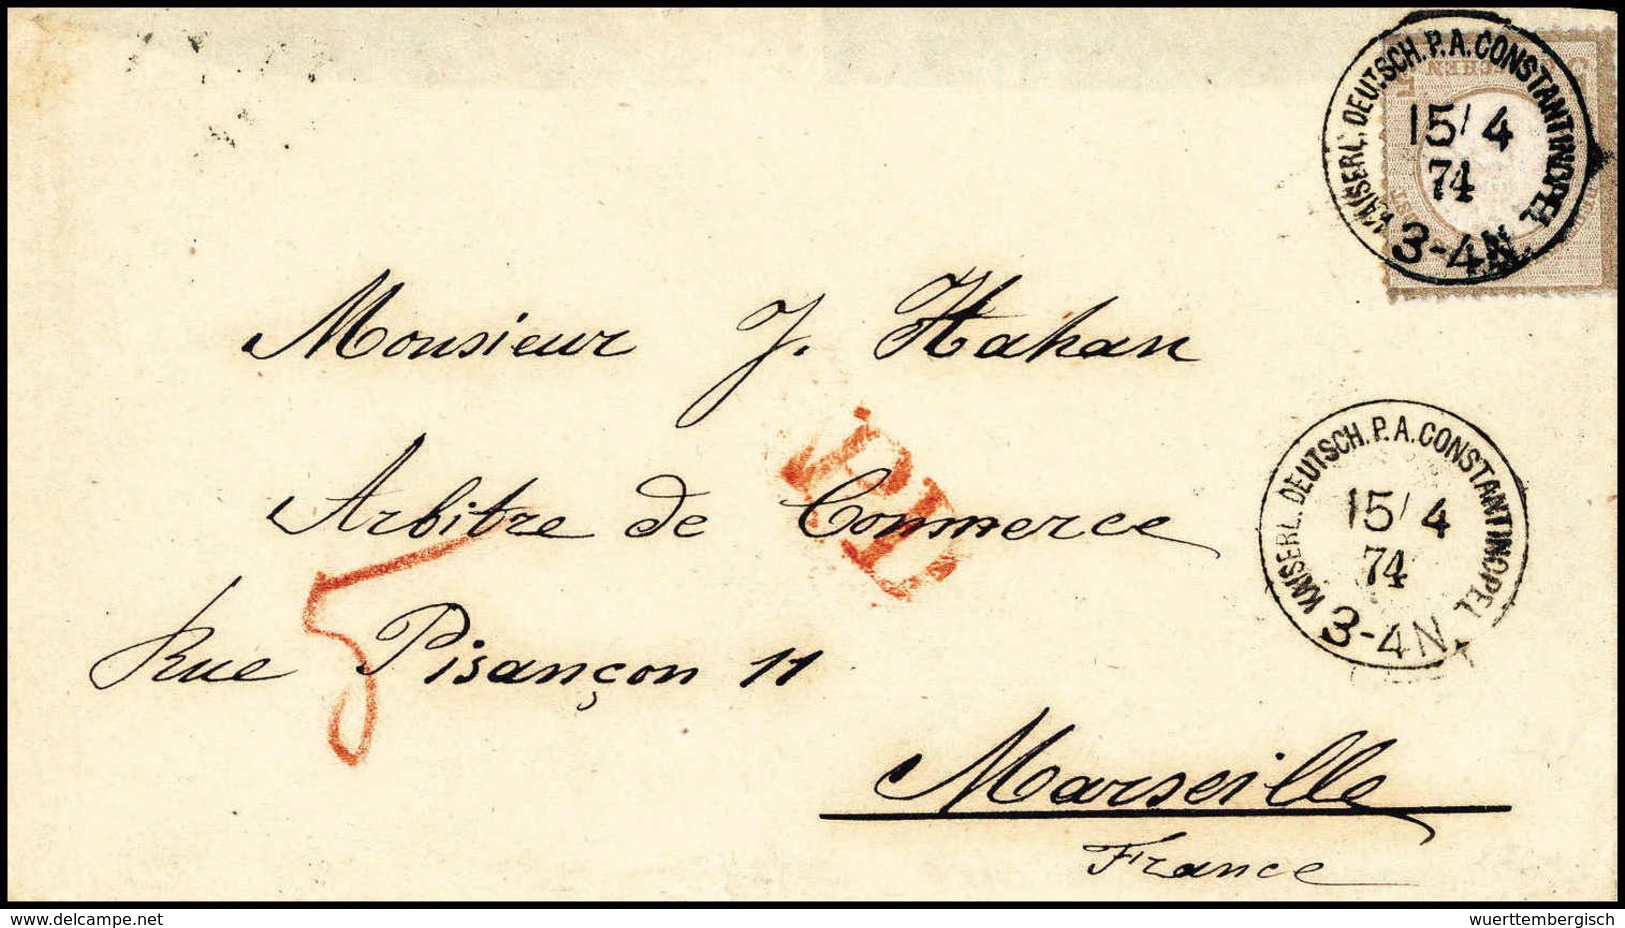 KAISERL. DEUTSCH. P. A. CONSTANTINOPEL
15/4
74
3-4N.
Monsieur J. Hahan
P.D.
KAISERL. DEUTSCH. P. A. CONSTANTINOPEL
15/4
74
3-4N.
Arbitre de Commerce
5
Rue Pisançon 11
Marseille
France
www.delcampe.net
wuerttembergisch